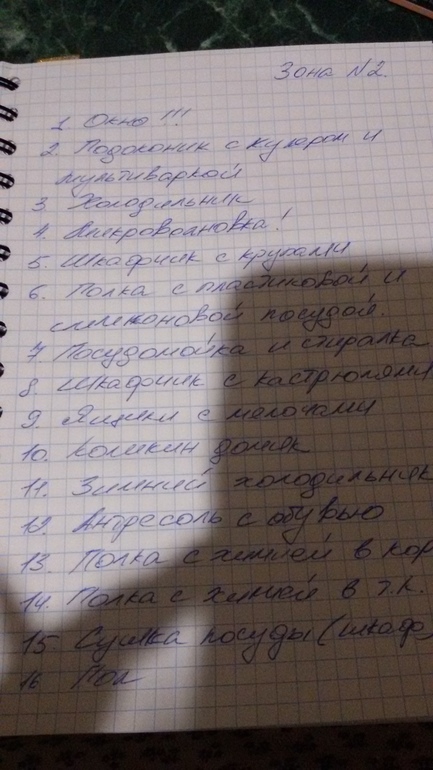 Зона №2.
1. Окно!!!
2. Подоконик с кулером и
мультиваркой
3 Холодильник
4. Микроволновка!
5. Шкафчик с крупами
6. Полка с пластиковой и
силиконовой посудой.
7 Посудомойка и стиралка
8. Шкафчик с кастрюлями
9. Ящики с мелочами
10. домик
11. Зимний холодильник
12. Антресоль с обувью
13. Полка с химией в кор
14. Полка с химией в т.к.
15 Сушка посуды (шкаф,
16 Пол